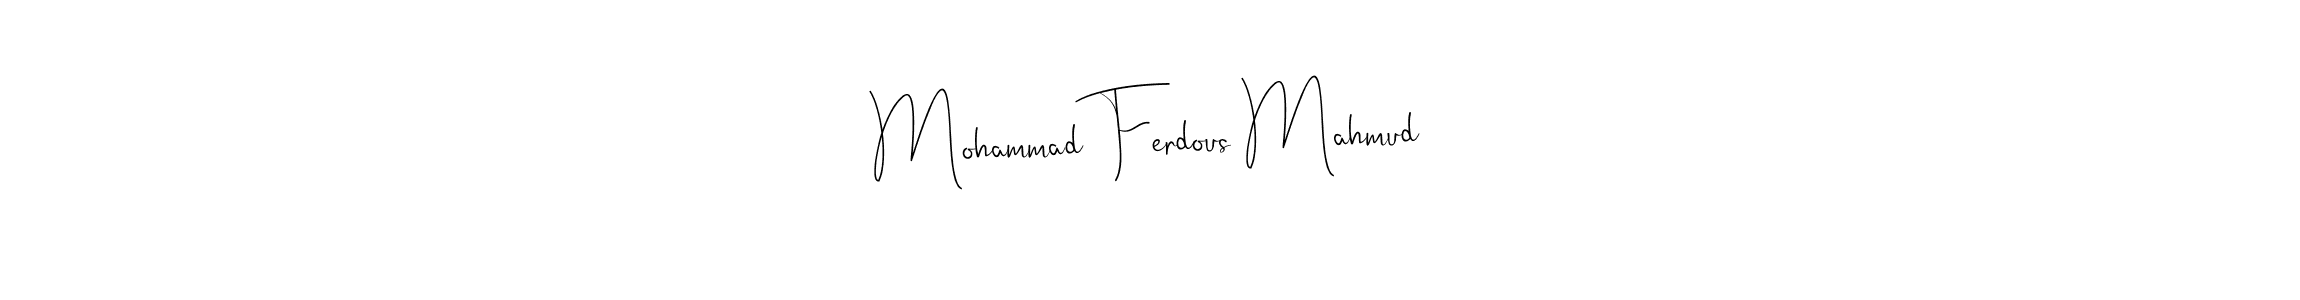 Mohammad Ferdous Mahmud